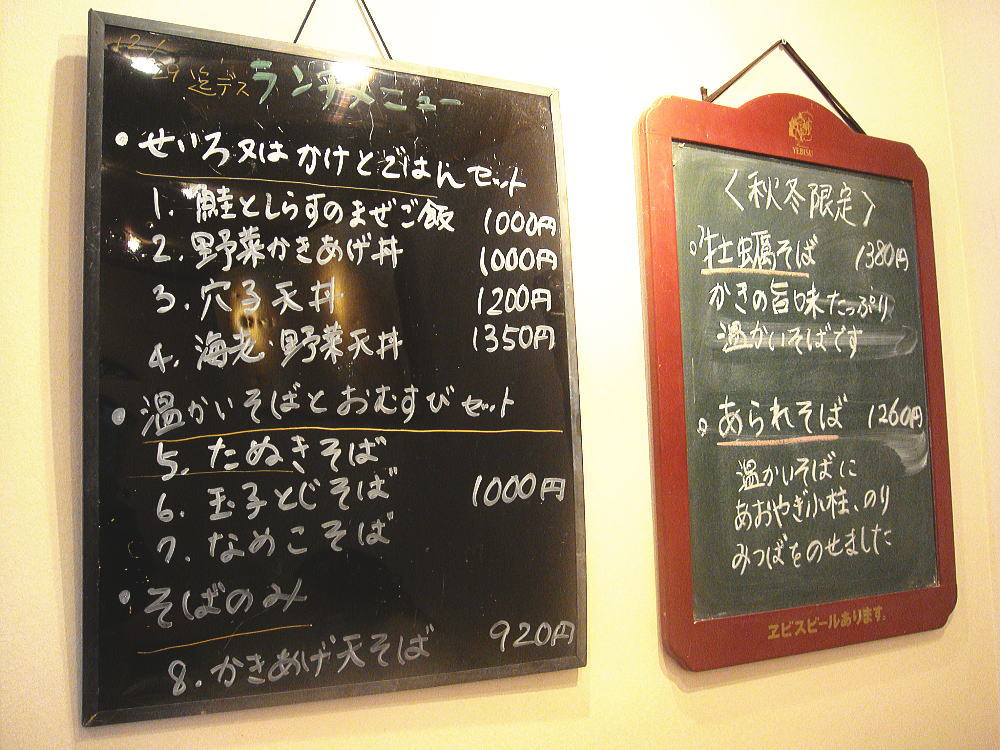 12/29迄デス ランチメニュー
・せいろ又はかけとごはんセット
1. 鮭としらすのまぜご飯 1000円
2. 野菜かきあげ丼 1000円
3. 穴子天丼 1200円
4. 海老・野菜天丼 1350円
・温かいそばとおむすびセット
5. たぬきそば
6. 玉子とじそば 1000円
7. なめこそば
・そばのみ
8. かきあげ天そば 920円
YEBISU
〈秋冬限定〉
。牡蠣そば 1380円
かきの旨味たっぷり
温かいそばです
。あられそば 1260円
温かいそばに
あおやぎ小柱、のり
みつばをのせました
ヱビスビールあります。